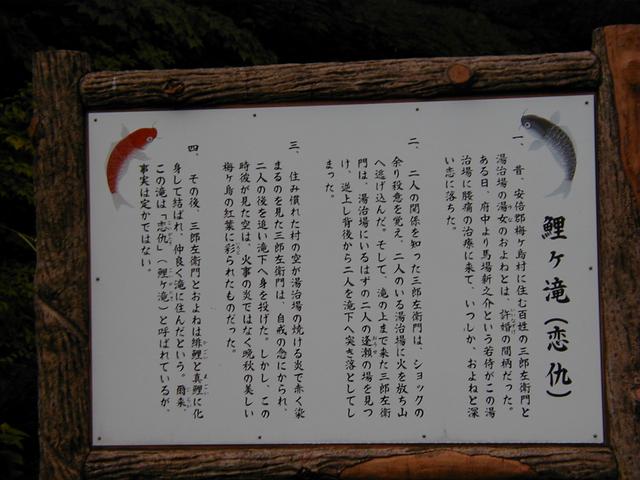 鯉ヶ滝(恋仇)
一、昔、安倍郡梅ヶ島村に住む百姓の三郎左衛門と
湯治場の湯女のおよねとは、許婚の間柄だった。
ある日、府中より馬場新之介という若侍がこの湯
治場に腰痛の治療に来て、いつしか、およねと深
い恋に落ちた。
二、二人の関係を知った三郎左衛門は、ショックの
余り殺意を覚え、二人のいる湯治場に火を放ち山
へ逃げ込んだ。そして、滝の上まで来た三郎左衛
門は、湯治場にいるはずの二人の逢瀬の場を見つ
け、逆上し背後から二人を滝下へ突き落としてし
まった。
三、住み慣れた村の空が湯治場の焼ける炎で赤く染
まるのを見た三郎左衛門は、自戒の念にかられ、
二人の後を追い滝下へ身を投げた。しかし、この
時彼が見た空は、火事の炎ではなく晩秋の美しい
梅ヶ島の紅葉に彩られたものだった。
四、その後、三郎左衛門とおよねは緋鯉と真鯉に化
身して結ばれ、仲良く滝に住んだという。爾来、
この滝は「恋仇」(鯉ヶ滝)と呼ばれているが、
事実は定かではない。